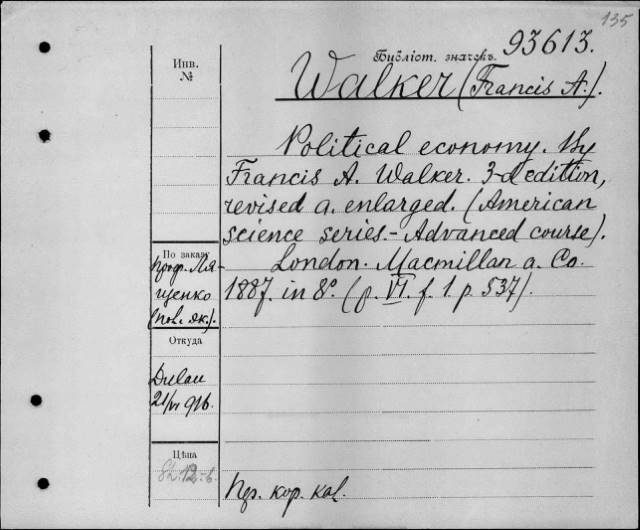 135
Библіот. значекъ 93613.
Инв.
№
Walker (Francis A.).
Political economy. By
Francis A. Walker. 3-d edition,
revised a. enlarged. (American
science series.- Advanced course).
London. Macmillan a. Co.
1887. in 8º. (p. VI. f. 1. p. 537).
По заказу
проф. Ля-
щенко
Откуда
Dulau
21/VI 916.
Цѣна
кор. kal.